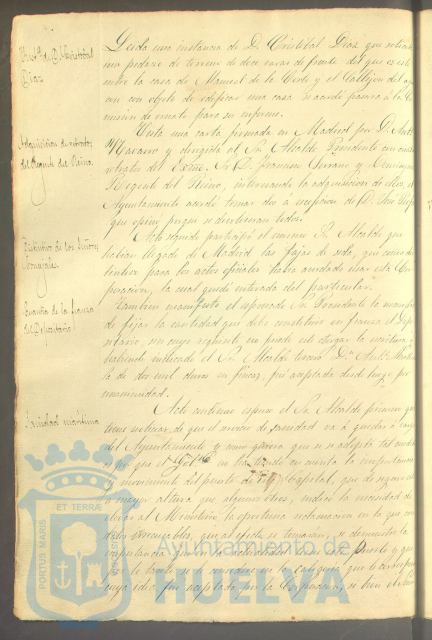 Inst.ª de D. Cristóbal
Díaz
Leida una instancia de D. Cristóbal Díaz que solicita
un pedazo de terreno de doce varas de frente del que existe
entre la casa de Manuel de la Cerda y el Callejon del
con con objeto de edificar una casa se acordó pasara á la Co
mision de ornato para su informe.
Adquisicion de retratos
del Regente del Reino.
Vista una carta firmada en Madrid por D. Ant.º
Navarro y dirigida al Sr. Alcalde Presidente con
retratos del Excmo. Sr. D. Francisco Serrano y Dominguez
Regente del Reino, interesando la adquisicion de ellos, el
Ayuntamiento acordó tomar dos a escepcion de D. José
que opinó porque se devolvieran todos.
Distintivo de los Señores
Concejales.
Acto seguido participó el mismo Sr. Alcalde que
habian llegado de Madrid las fajas de seda, que como dis
tintivo para los actos oficiales habia acordado usar esta Cor
poracion, la cual quedó enterada del particular.
Cuantia de la fianza
del Depositario
Tambien manifestó el espresado Sr. Presidente la
de fijar la cantidad que debe constituir en fianza el Depo
sitario, sin cuyo requisito, no puede otorgar la escritura y
habiendo indicado el Sr. Alcalde tercero D.
la de dos mil duros en fincas, fué aceptada desde luego por
unanimidad.
Sanidad maritima
Acto continuo espuso el Sr. Alcalde primero que
tiene noticias de que el servicio de sanidad vá á quedar á cargo
del Ayuntamiento y como quiera que si se adopta tal medida
es por que el Gob.no no ha tenido en cuenta la importancia
y movimiento del puerto de esta Capital, que
á mayor altura que algunos otros, indicó la necesidad de
elevar al Ministerio la oportuna reclamacion en la que con
datos irrecusables, que al efecto se tomarán, se demuestre la
importancia
cuya idea fué aceptada por la Corporacion, si bien el
ET TERRAE
PORTUS MARIS
CUSTODIA
Ayuntamiento de
HUELVA